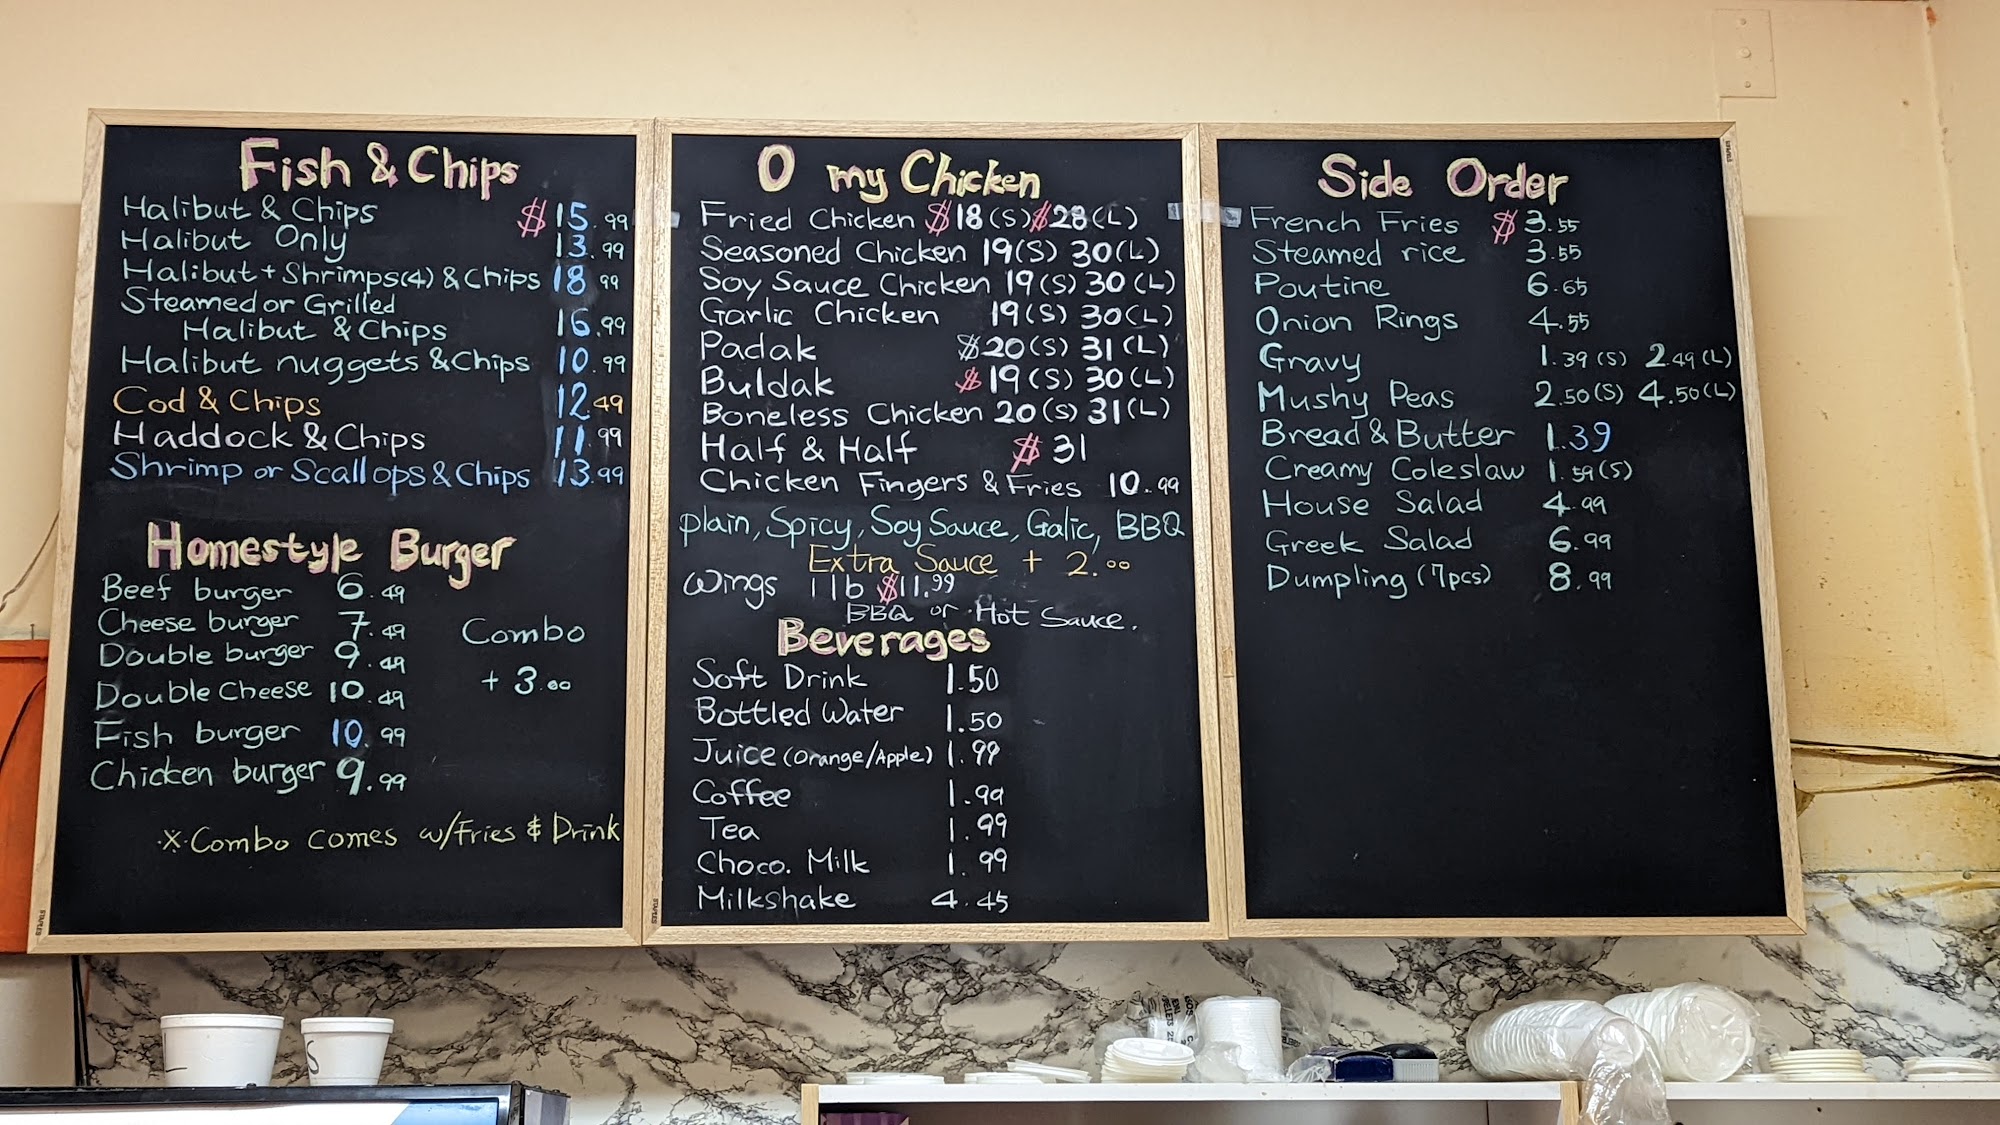 Fish & Chips
Halibut & Chips $15.99
Halibut Only 13.99
Halibut + Shrimps(4) & Chips 18.99
Steamed or Grilled
Halibut & Chips 16.99
Halibut nuggets & Chips 10.99
Cod & Chips 12.49
Haddock & Chips 11.99
Shrimp or Scallops & Chips 13.99
Homestyle Burger
Beef burger 6.49
Cheese burger 7.49
Double burger 9.49
Double Cheese 10.49
Fish burger 10.99
Chicken burger 9.99
Combo
+ 3.00
※Combo comes w/Fries & Drink
STAPLES
O my Chicken
Fried Chicken $18(S) $28(L)
Seasoned Chicken 19(S) 30(L)
Soy Sauce Chicken 19(S) 30(L)
Garlic Chicken 19(S) 30(L)
Padak $20(S) 31(L)
Buldak $19(S) 30(L)
Boneless Chicken 20(S) 31(L)
Half & Half $31
Chicken Fingers & Fries 10.99
plain, Spicy, Soy Sauce, Galic, BBQ
Extra Sauce + 2.00
Wings 1 lb $11.99
BBQ or Hot Sauce.
Beverages
Soft Drink 1.50
Bottled Water 1.50
Juice (Orange/Apple) 1.99
Coffee 1.99
Tea 1.99
Choco. Milk 1.99
Milkshake 4.45
STAPLES
Side Order
French Fries $3.55
Steamed rice 3.55
Poutine 6.65
Onion Rings 4.55
Gravy 1.39(S) 2.49(L)
Mushy Peas 2.50(S) 4.50(L)
Bread & Butter 1.39
Creamy Coleslaw 1.59(S)
House Salad 4.99
Greek Salad 6.99
Dumpling (7pcs) 8.99
STAPLES
L
S